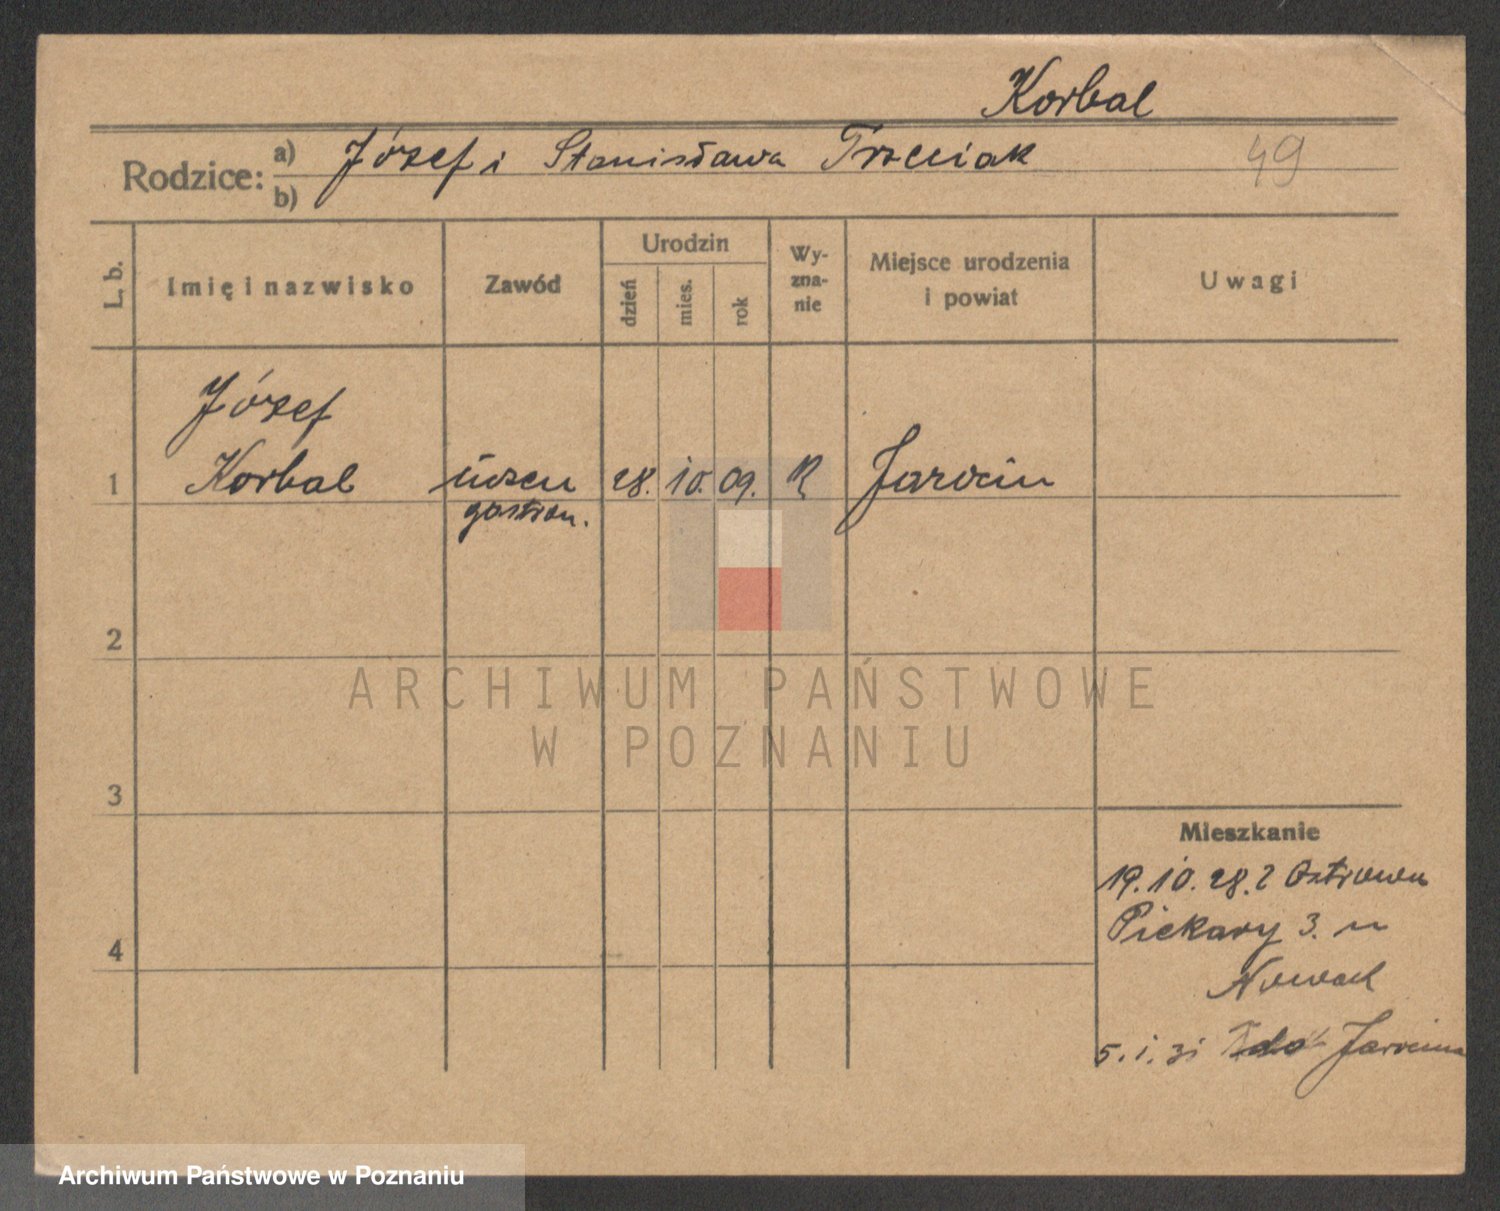 Korbal
Rodzice: a) Józef i Stanisława Trzeciak 49
b)
L. b. Imię i nazwisko Zawód Urodzin dzień mies. rok Wy-zna-nie Miejsce urodzenia i powiat Uwagi
Józef
1 Korbal uczeń 28. 10. 09. R Jarocin
gastron.
2
ARCHIWUM PAŃSTWOWE
W POZNANIU
3
Mieszkanie
19. 10. 28. z Ostrowa
Piekary 3. u
4
Nowak
5. 1. 31 do Jarocina
Archiwum Państwowe w Poznaniu